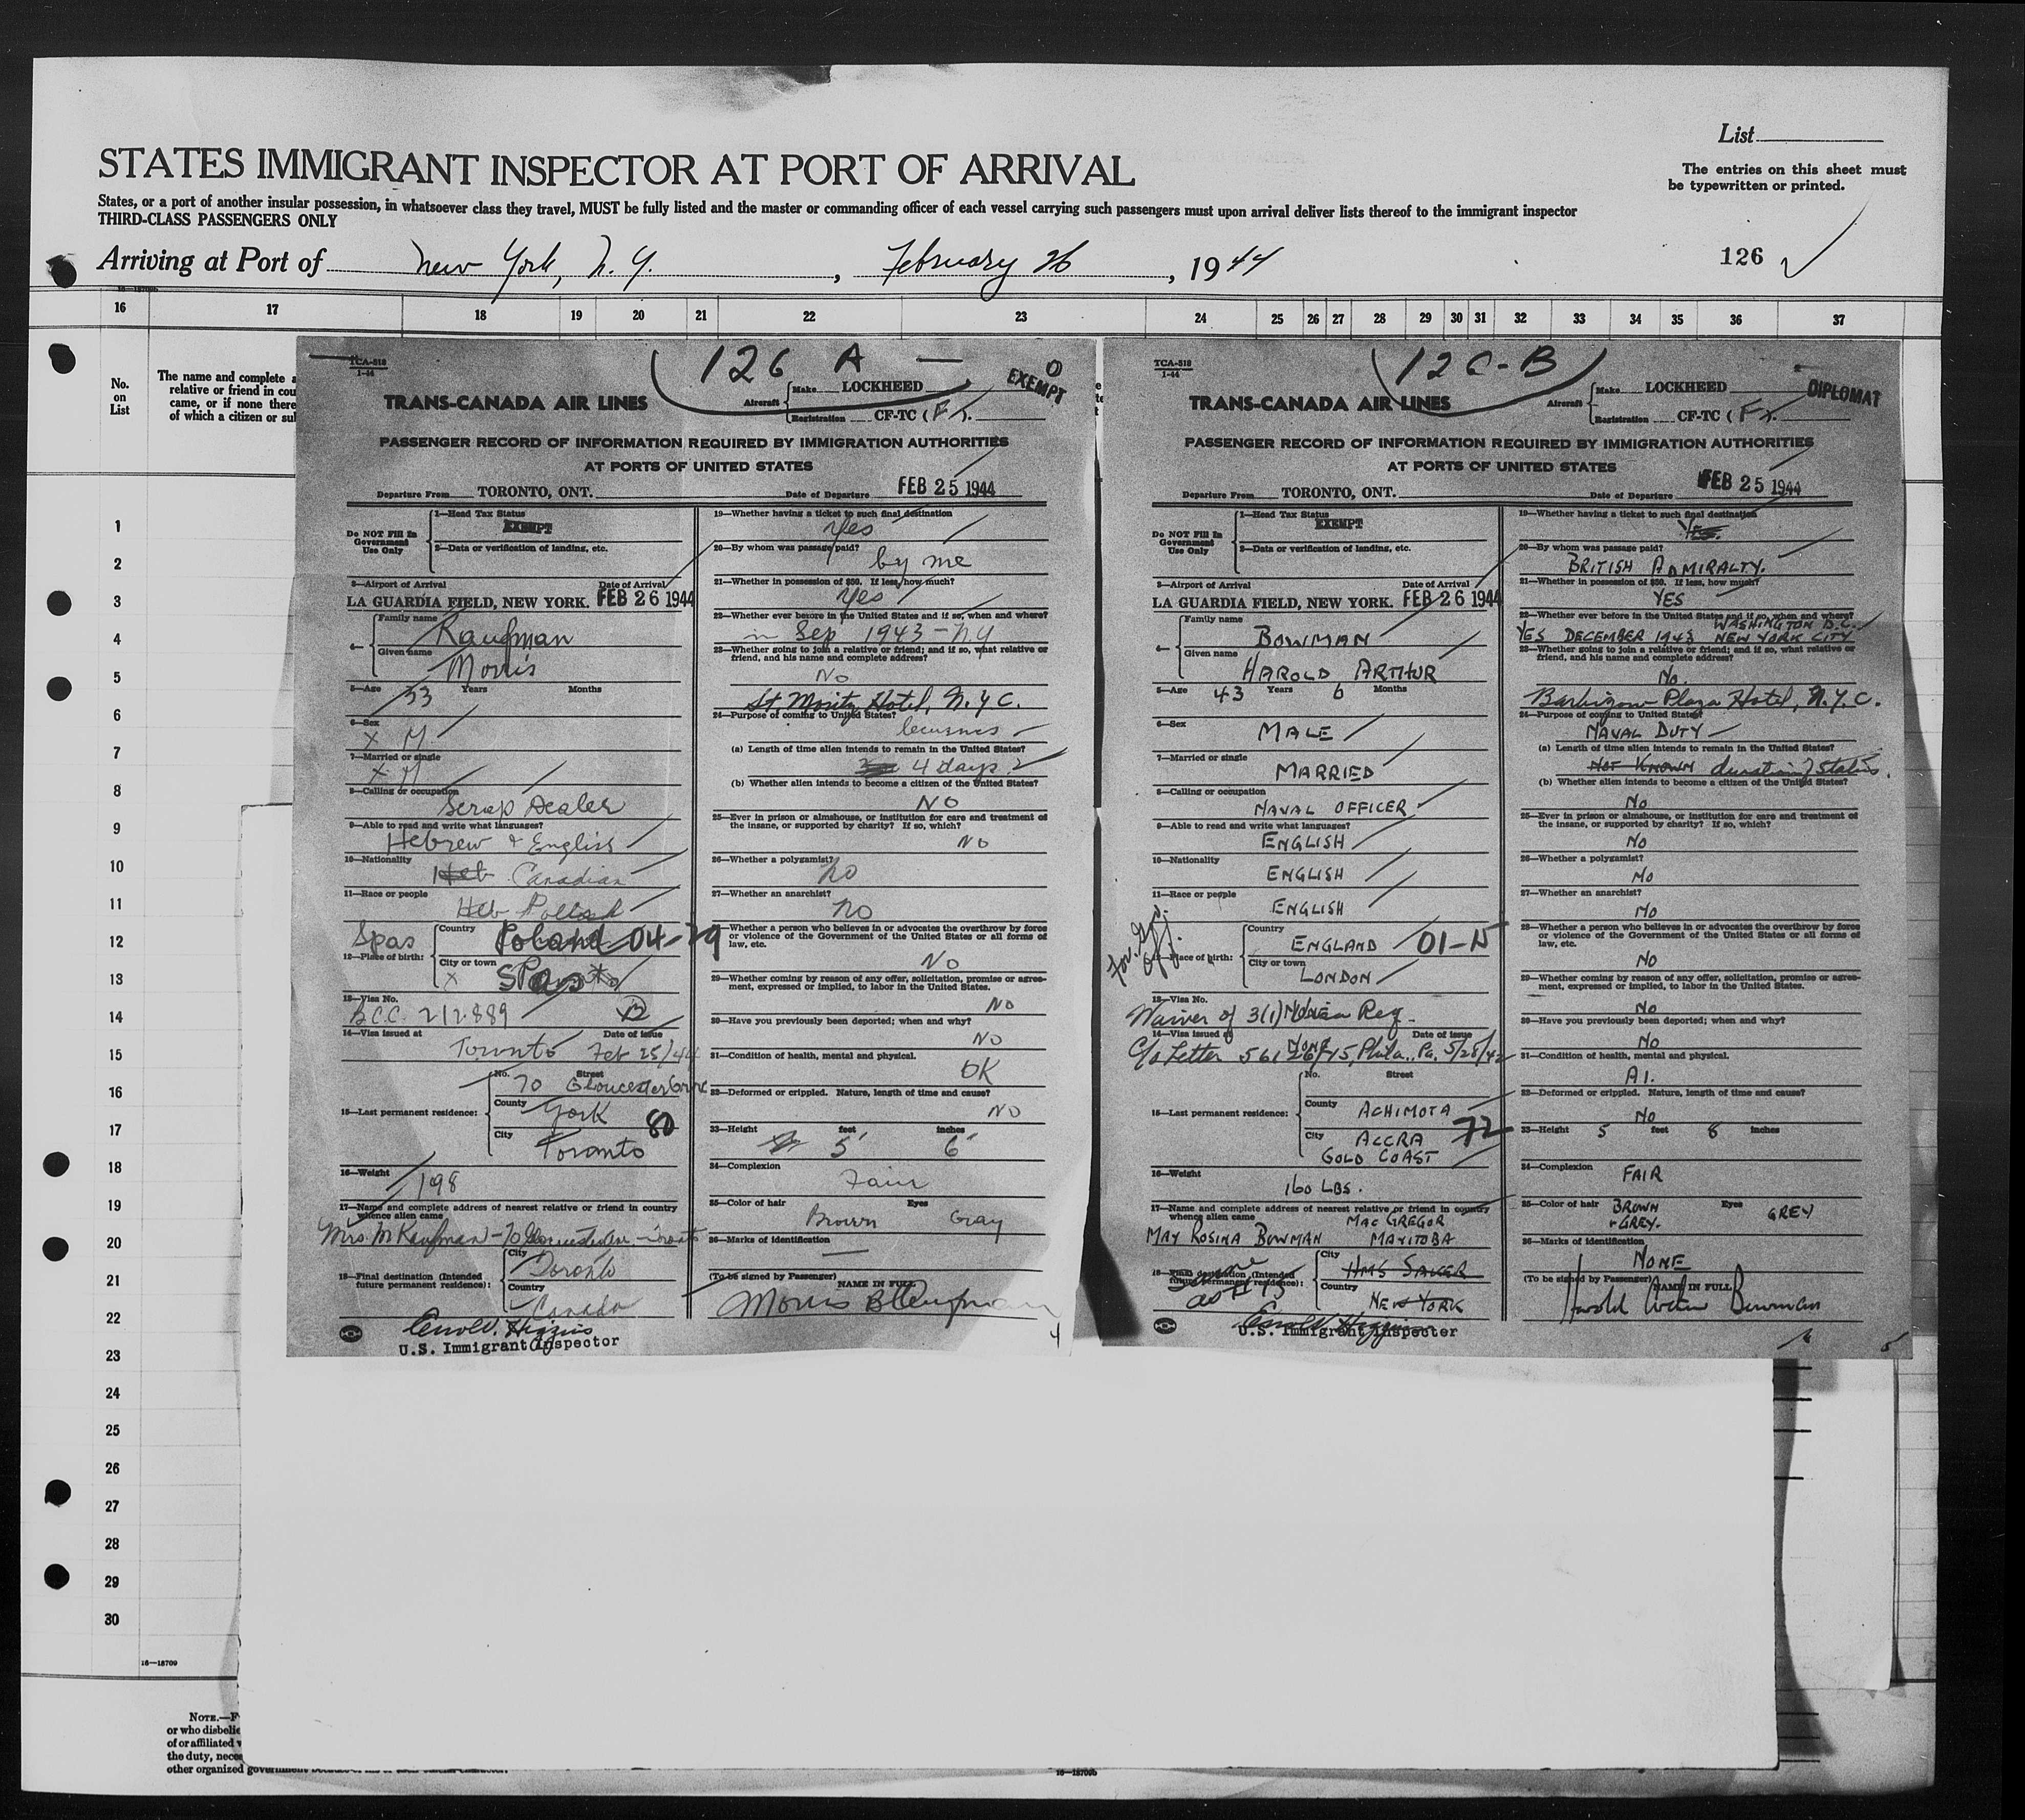 List
STATES IMMIGRANT INSPECTOR AT PORT OF ARRIVAL
The entries on this sheet must
be typewritten or printed.
States, or a port of another insular possession, in whatsoever class they travel, MUST be fully listed and the master or commanding officer of each vessel carrying such passengers must upon arrival deliver lists thereof to the immigrant inspector
THIRD-CLASS PASSENGERS ONLY
Arriving at Port of New York, N. Y., February 26, 1944
126
16 17 18 19 20 21 22 23 24 25 26 27 28 29 30 31 32 33 34 35 36 37
No.
on
List
The name and complete a
relative or friend in cou
came, or if none there
of which a citizen or su
1
2
3
4
5
6
7
8
9
10
11
12
13
14
15
16
17
18
19
20
21
22
23
24
25
26
27
28
29
30
TCA-518
1-44
126 A
EXEMPT
TRANS-CANADA AIR LINES
Aircraft
Make LOCKHEED
Registration CF-TC (
PASSENGER RECORD OF INFORMATION REQUIRED BY IMMIGRATION AUTHORITIES
AT PORTS OF UNITED STATES
Departure From TORONTO, ONT. Date of Departure FEB 25 1944
Do NOT Fill In
Government
Use Only
1—Head Tax Status
EXEMPT
2—Data or verification of landing, etc.
3—Airport of Arrival Date of Arrival
LA GUARDIA FIELD, NEW YORK. FEB 26 1944
4—
Family name
Kaufman
Given name
Morris
5—Age 53 Years Months
6—Sex
X M
7—Married or single
X M
8—Calling or occupation
Scrap Dealer
9—Able to read and write what languages?
Hebrew & English
10—Nationality
Heb Canadian
11—Race or people
Heb Polish
Spas
12—Place of birth:
Country
Poland 04-29
City or town
X Spas
13—Visa No.
B.C.C. 212889
14—Visa issued at Date of issue
Toronto Feb 25/44
15—Last permanent residence:
No. Street
70 Gloucester Grove
County
York 80
City
Toronto
16—Weight
198
17—Name and complete address of nearest relative or friend in country
whence alien came
Mrs. M Kaufman - 70 Gloucester Grove - Toronto
18—Final destination (Intended
future permanent residence):
City
Toronto
Country
Canada
Higgins
U.S. Immigrant Inspector
19—Whether having a ticket to such final destination
Yes
20—By whom was passage paid?
by me
21—Whether in possession of $50. If less, how much?
Yes
22—Whether ever before in the United States and if so, when and where?
in Sep 1943 - N.Y
23—Whether going to join a relative or friend; and if so, what relative or
friend, and his name and complete address?
No
St. Moritz Hotel, N.Y.C.
24—Purpose of coming to United States?
business
(a) Length of time alien intends to remain in the United States?
4 days
(b) Whether alien intends to become a citizen of the United States?
NO
25—Ever in prison or almshouse, or institution for care and treatment of
the insane, or supported by charity? If so, which?
NO
26—Whether a polygamist?
No
27—Whether an anarchist?
NO
28—Whether a person who believes in or advocates the overthrow by force
or violence of the Government of the United States or all forms of
law, etc.
NO
29—Whether coming by reason of any offer, solicitation, promise or agree-
ment, expressed or implied, to labor in the United States.
NO
30—Have you previously been deported; when and why?
NO
31—Condition of health, mental and physical.
OK
32—Deformed or crippled. Nature, length of time and cause?
NO
33—Height feet inches
5' 6"
34—Complexion
Fair
35—Color of hair Eyes
Brown Gray
36—Marks of identification
—
(To be signed by Passenger) NAME IN FULL
Morris B Kaufman
4
TCA-518
1-44
126-B
DIPLOMAT
TRANS-CANADA AIR LINES
Aircraft
Make LOCKHEED
Registration CF-TC (
PASSENGER RECORD OF INFORMATION REQUIRED BY IMMIGRATION AUTHORITIES
AT PORTS OF UNITED STATES
Departure From TORONTO, ONT. Date of Departure FEB 25 1944
Do NOT Fill In
Government
Use Only
1—Head Tax Status
EXEMPT
2—Data or verification of landing, etc.
3—Airport of Arrival Date of Arrival
LA GUARDIA FIELD, NEW YORK. FEB 26 1944
4—
Family name
BOWMAN
Given name
HAROLD ARTHUR
5—Age 43 Years 6 Months
6—Sex
MALE
7—Married or single
MARRIED
8—Calling or occupation
NAVAL OFFICER
9—Able to read and write what languages?
ENGLISH
10—Nationality
ENGLISH
11—Race or people
ENGLISH
For. Gov.
Off.
12—Place of birth:
Country
ENGLAND 01-15
City or town
LONDON
13—Visa No.
NONE
Waiver of 3(1) Visa Reg.
14—Visa issued at Date of issue
NONE
C/o Letter 56126/15, Phila., Pa. 5/28/42
15—Last permanent residence:
No. Street
County
ACHIMOTA
City
ACCRA 72
GOLD COAST
16—Weight
160 LBS.
17—Name and complete address of nearest relative or friend in country
whence alien came MAC GREGOR
MAY ROSINA BOWMAN MANITOBA
18—Final destination (Intended
future permanent residence):
same
as # 15
City
HMS SAKER
Country
NEW YORK
Higgins
U.S. Immigrant Inspector
19—Whether having a ticket to such final destination
YES.
20—By whom was passage paid?
BRITISH ADMIRALTY.
21—Whether in possession of $50. If less, how much?
YES
22—Whether ever before in the United States and if so, when and where?
WASHINGTON D.C.
YES DECEMBER 1943 NEW YORK CITY
23—Whether going to join a relative or friend; and if so, what relative or
friend, and his name and complete address?
No.
Barbizon Plaza Hotel, N.Y.C.
24—Purpose of coming to United States?
NAVAL DUTY
(a) Length of time alien intends to remain in the United States?
NOT KNOWN duration of status.
(b) Whether alien intends to become a citizen of the United States?
No
25—Ever in prison or almshouse, or institution for care and treatment of
the insane, or supported by charity? If so, which?
No
26—Whether a polygamist?
No
27—Whether an anarchist?
No
28—Whether a person who believes in or advocates the overthrow by force
or violence of the Government of the United States or all forms of
law, etc.
No
29—Whether coming by reason of any offer, solicitation, promise or agree-
ment, expressed or implied, to labor in the United States.
No
30—Have you previously been deported; when and why?
No
31—Condition of health, mental and physical.
A1.
32—Deformed or crippled. Nature, length of time and cause?
No
33—Height 5 feet 8 inches
34—Complexion
FAIR
35—Color of hair BROWN Eyes GREY
+ GREY.
36—Marks of identification
NONE
(To be signed by Passenger) NAME IN FULL
Harold Arthur Bowman
5
16—18709
NOTE.—F
or who disbelie
of or affiliated w
the duty, neces
other organized government
16—18709b